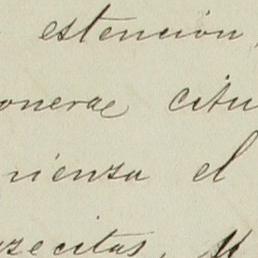 estencion,
onerae citu
rienza el
azecitas, y